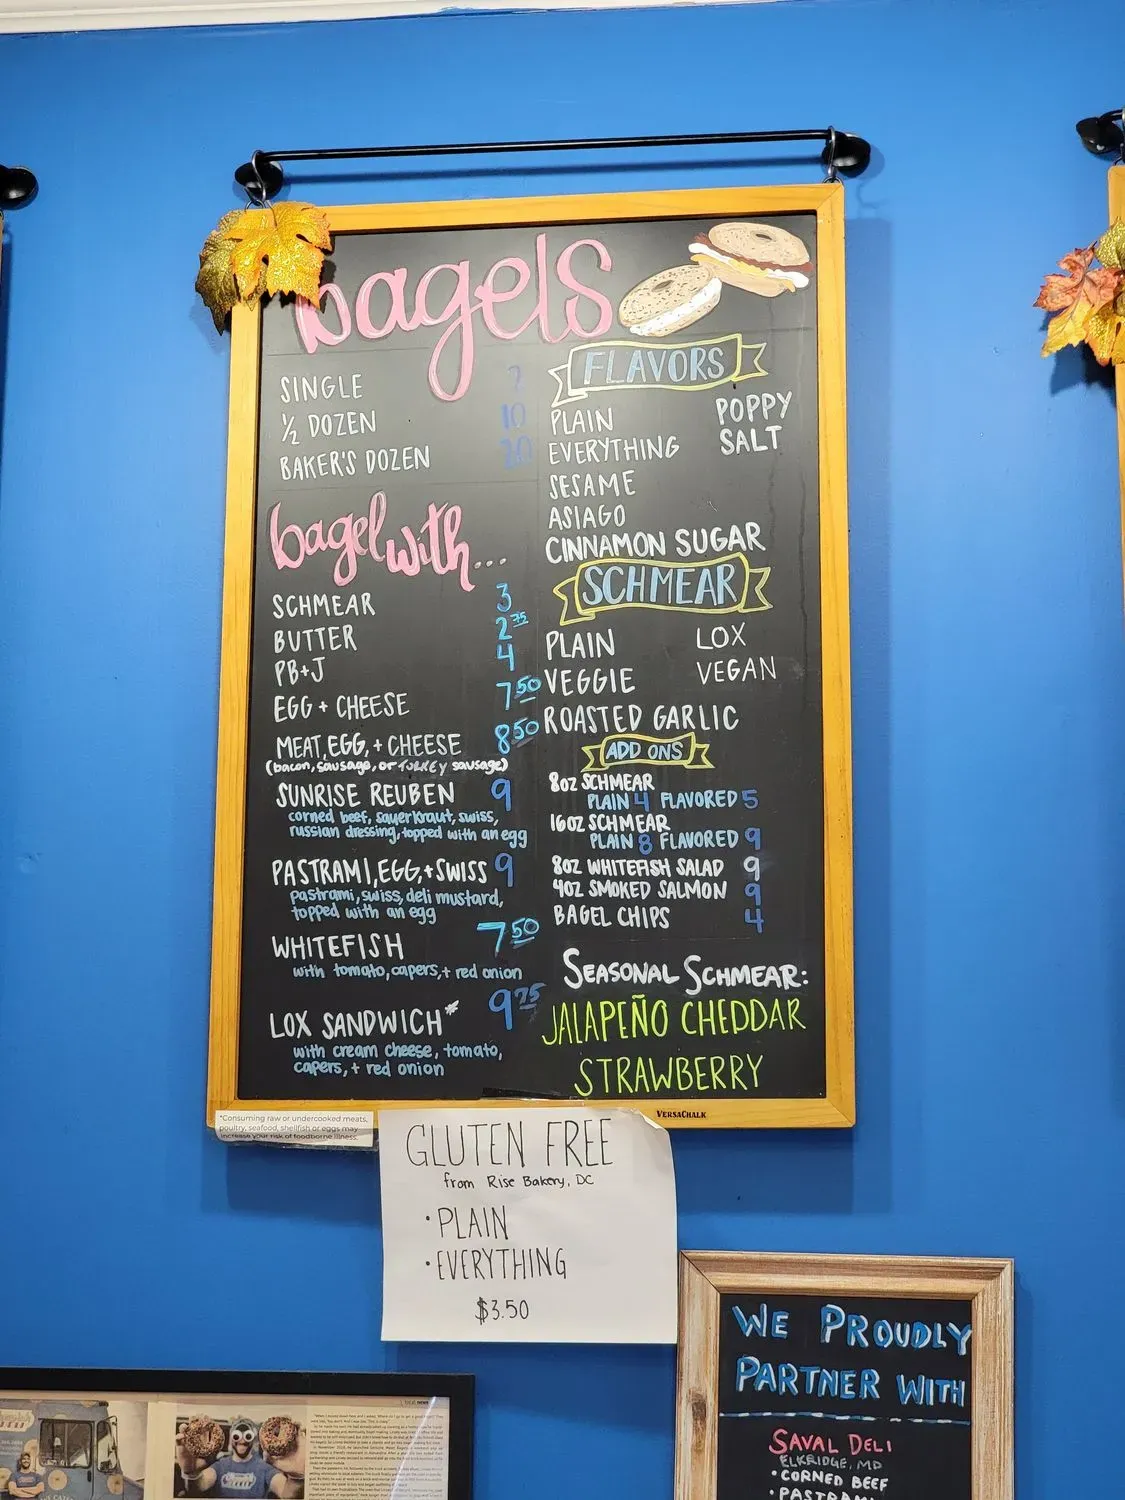 bagels
SINGLE 2
½ DOZEN 10
BAKER'S DOZEN 20
bagel with...
SCHMEAR 3
BUTTER 2 75
PB+J 4
EGG + CHEESE 7 50
MEAT, EGG, + CHEESE 8 50
(bacon, sausage, or TURKEY sausage)
SUNRISE REUBEN 9
corned beef, sauerkraut, swiss,
russian dressing, topped with an egg
PASTRAMI, EGG, + SWISS 9
pastrami, swiss, deli mustard,
topped with an egg
WHITEFISH 7 50
with tomato, capers, + red onion
LOX SANDWICH* 9 75
with cream cheese, tomato,
capers, + red onion
FLAVORS
PLAIN POPPY
EVERYTHING SALT
SESAME
ASIAGO
CINNAMON SUGAR
SCHMEAR
PLAIN LOX
VEGGIE VEGAN
ROASTED GARLIC
ADD ONS
8OZ SCHMEAR
PLAIN 4 FLAVORED 5
16OZ SCHMEAR
PLAIN 8 FLAVORED 9
8OZ WHITEFISH SALAD 9
4OZ SMOKED SALMON 9
BAGEL CHIPS 4
SEASONAL SCHMEAR:
JALAPEÑO CHEDDAR
STRAWBERRY
VERSACHALK
*Consuming raw or undercooked meats,
poultry, seafood, shellfish or eggs may
increase your risk of foodborne illness.
GLUTEN FREE
from Rise Bakery, DC
• PLAIN
• EVERYTHING
$3.50
WE PROUDLY
PARTNER WITH
SAVAL DELI
ELKRIDGE, MD
• CORNED BEEF
• PASTRAMI